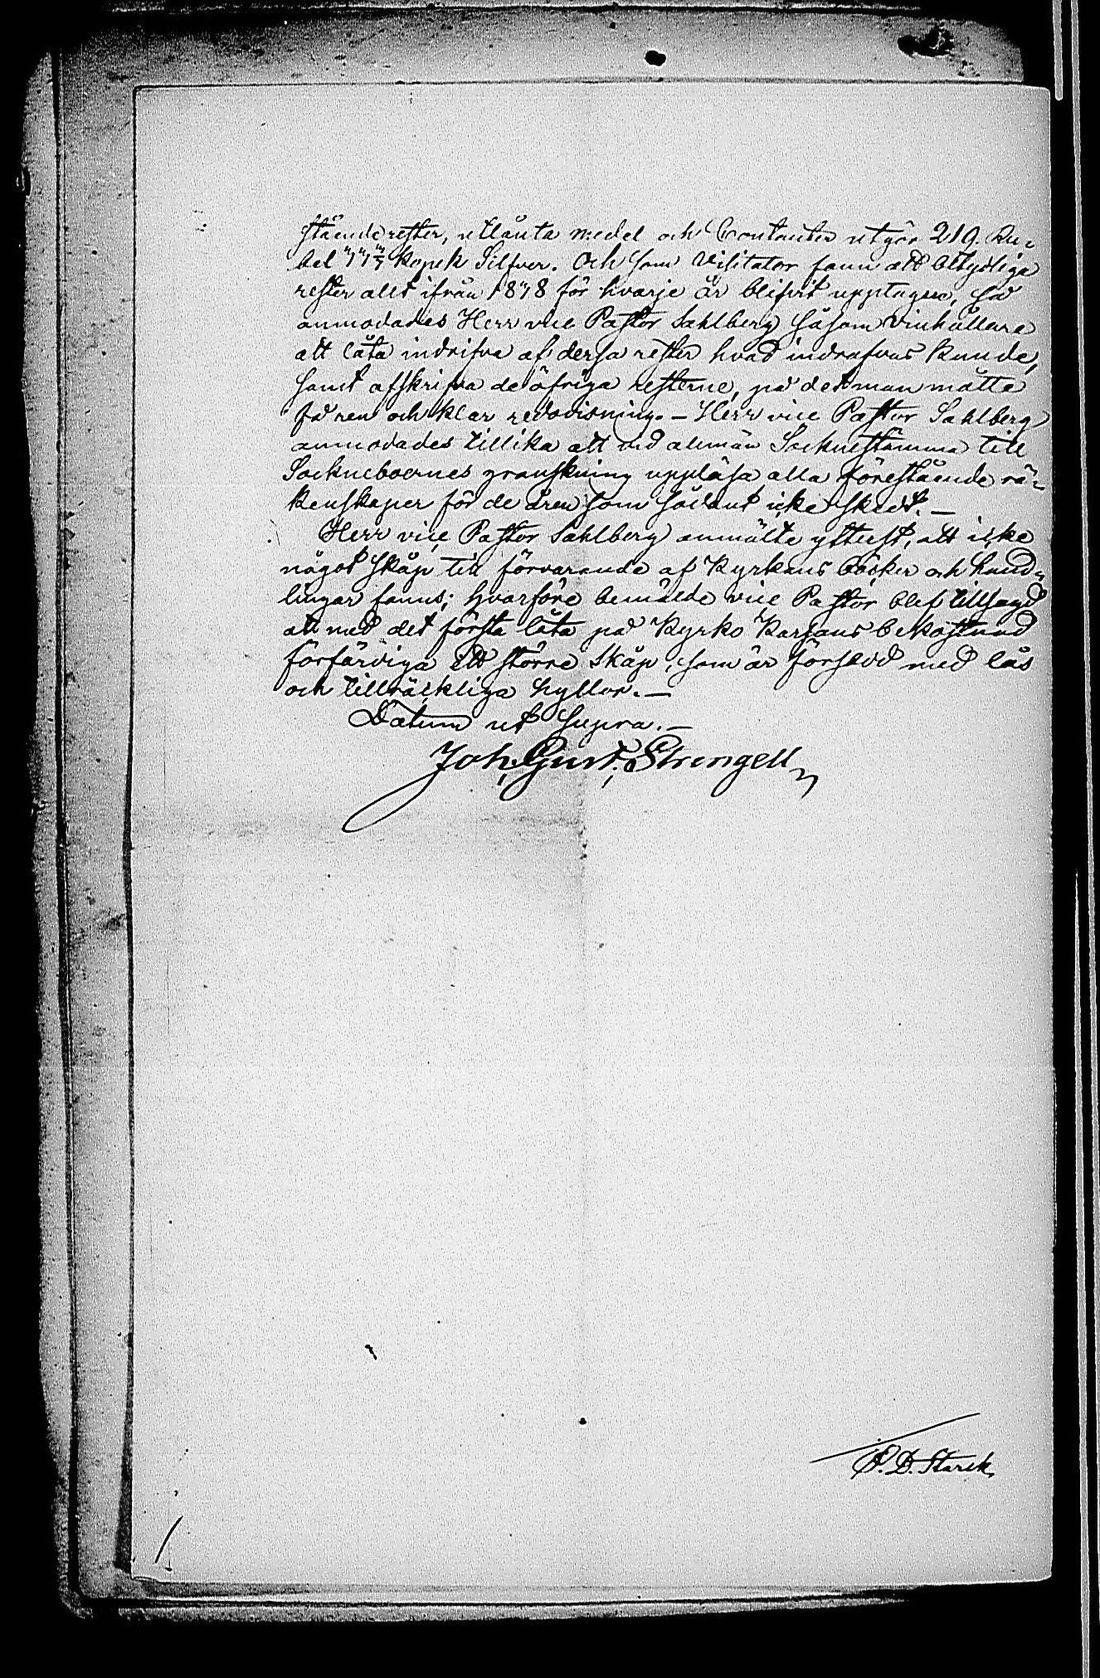 stående rester, utlånta medel och Contanter utgör 219. Ru-
bel kopek Silfver. Och som Visitator fann att betydliga
rester allt ifrån 1878 för hvarje år blifvit upptagne, så
anmodades Herr vice Pastor Sahlberg såsom vinhållare
att låta indrifva af dessa rester hvad indrifvas kunde,
samt afskrifva de öfriga resterne, på det man måtte
få ren och klar redovisning. — Herr vice Pastor Sahlberg
anmodades tillika att vid allmän Socknestämma till
Sockneboernes granskning uppläsa alla förestående rä-
kenskaper för de åren som sådant icke skedt. —
Herr vice Pastor Sahlberg anmälte ytterst, att icke
något skåp till förvarande af Kyrkans böcker och hand-
lingar fanns; hvarföre bemälde vice Pastor blef tillsagd
att med det första låta på Kyrko Kassans bekostnad
förfärdiga ett större skåp, som är försedd med lås
och tillräckliga hyllor. —
Datum ut supra. —
Joh. Gust. Strengell
P. D. Starck